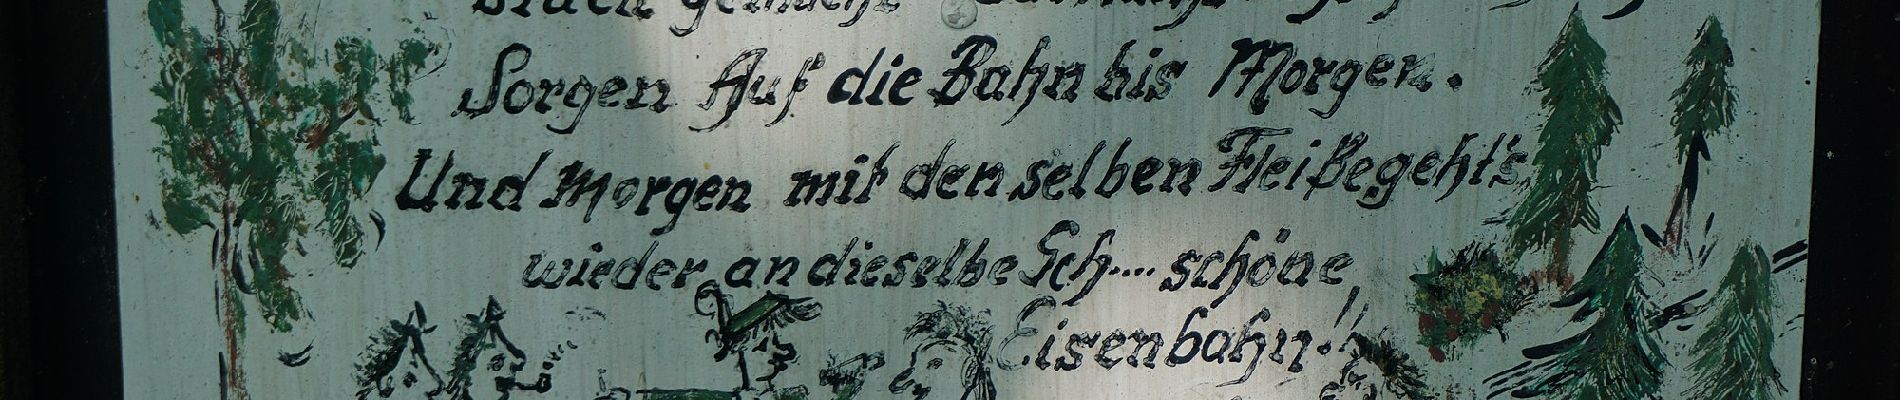 Sorgen Auf die Bahn bis Morgen.
Und Morgen mit den selben Fleiße geht's
wieder an dieselbe Sch.... schöne
Eisenbahn!!